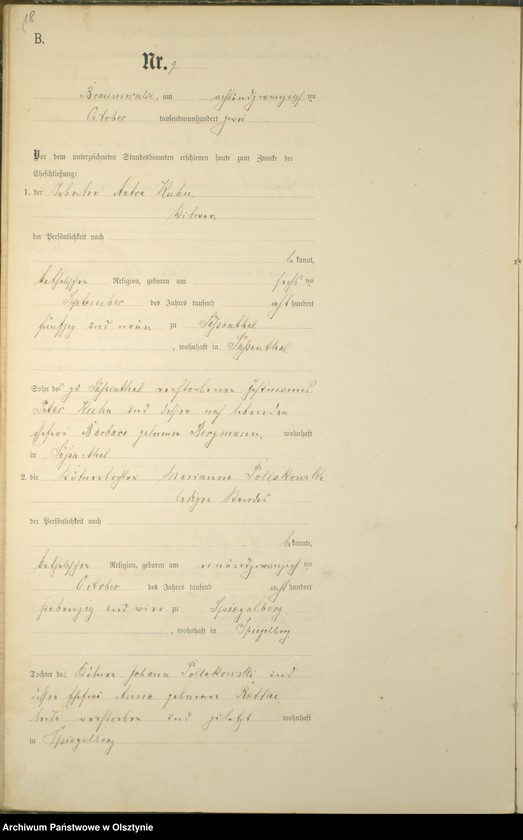 18
B.
Nr. 9
Braunswalde, am achtundzwanzigsten
October tausendneunhundert zwei
Vor dem unterzeichneten Standesbeamten erschienen heute zum Zwecke der
Eheschließung:
1. der Arbeiter Anton Kuhn,
Witwer,
der Persönlichkeit nach
bekannt,
katholischer Religion, geboren am sechsten
September des Jahres tausend achthundert
fünfzig und neun zu Süssenthal
, wohnhaft in Süssenthal
Sohn des zu Süssenthal verstorbenen
Peter Kuhn und dessen noch lebenden
Ehefrau Barbara geborene Bergmann, wohnhaft
in Süssenthal
2. die Kätnertochter Marianna Pollakowski
ledigen Standes
der Persönlichkeit nach
bekannte,
katholischer Religion, geboren am einundzwanzigsten
October des Jahres tausend achthundert
siebenzig und vier zu Spiegelberg,
, wohnhaft in Spiegelberg
Tochter des Kätner Johann Pollakowski und
Ehefrau Anna geborene
beide verstorben und zuletzt wohnhaft
in Spiegelberg
Archiwum Państwowe w Olsztynie